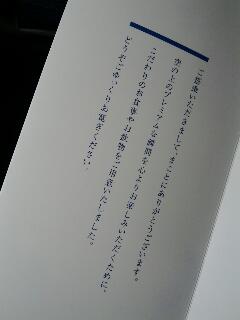 ご搭乗いただきまして、まことにありがとうございます。
空の上のプレミアムな瞬間を心よりお楽しみいただくために、
こだわりのお食事やお飲物をご用意いたしました。
どうぞごゆっくりお寛ぎください。